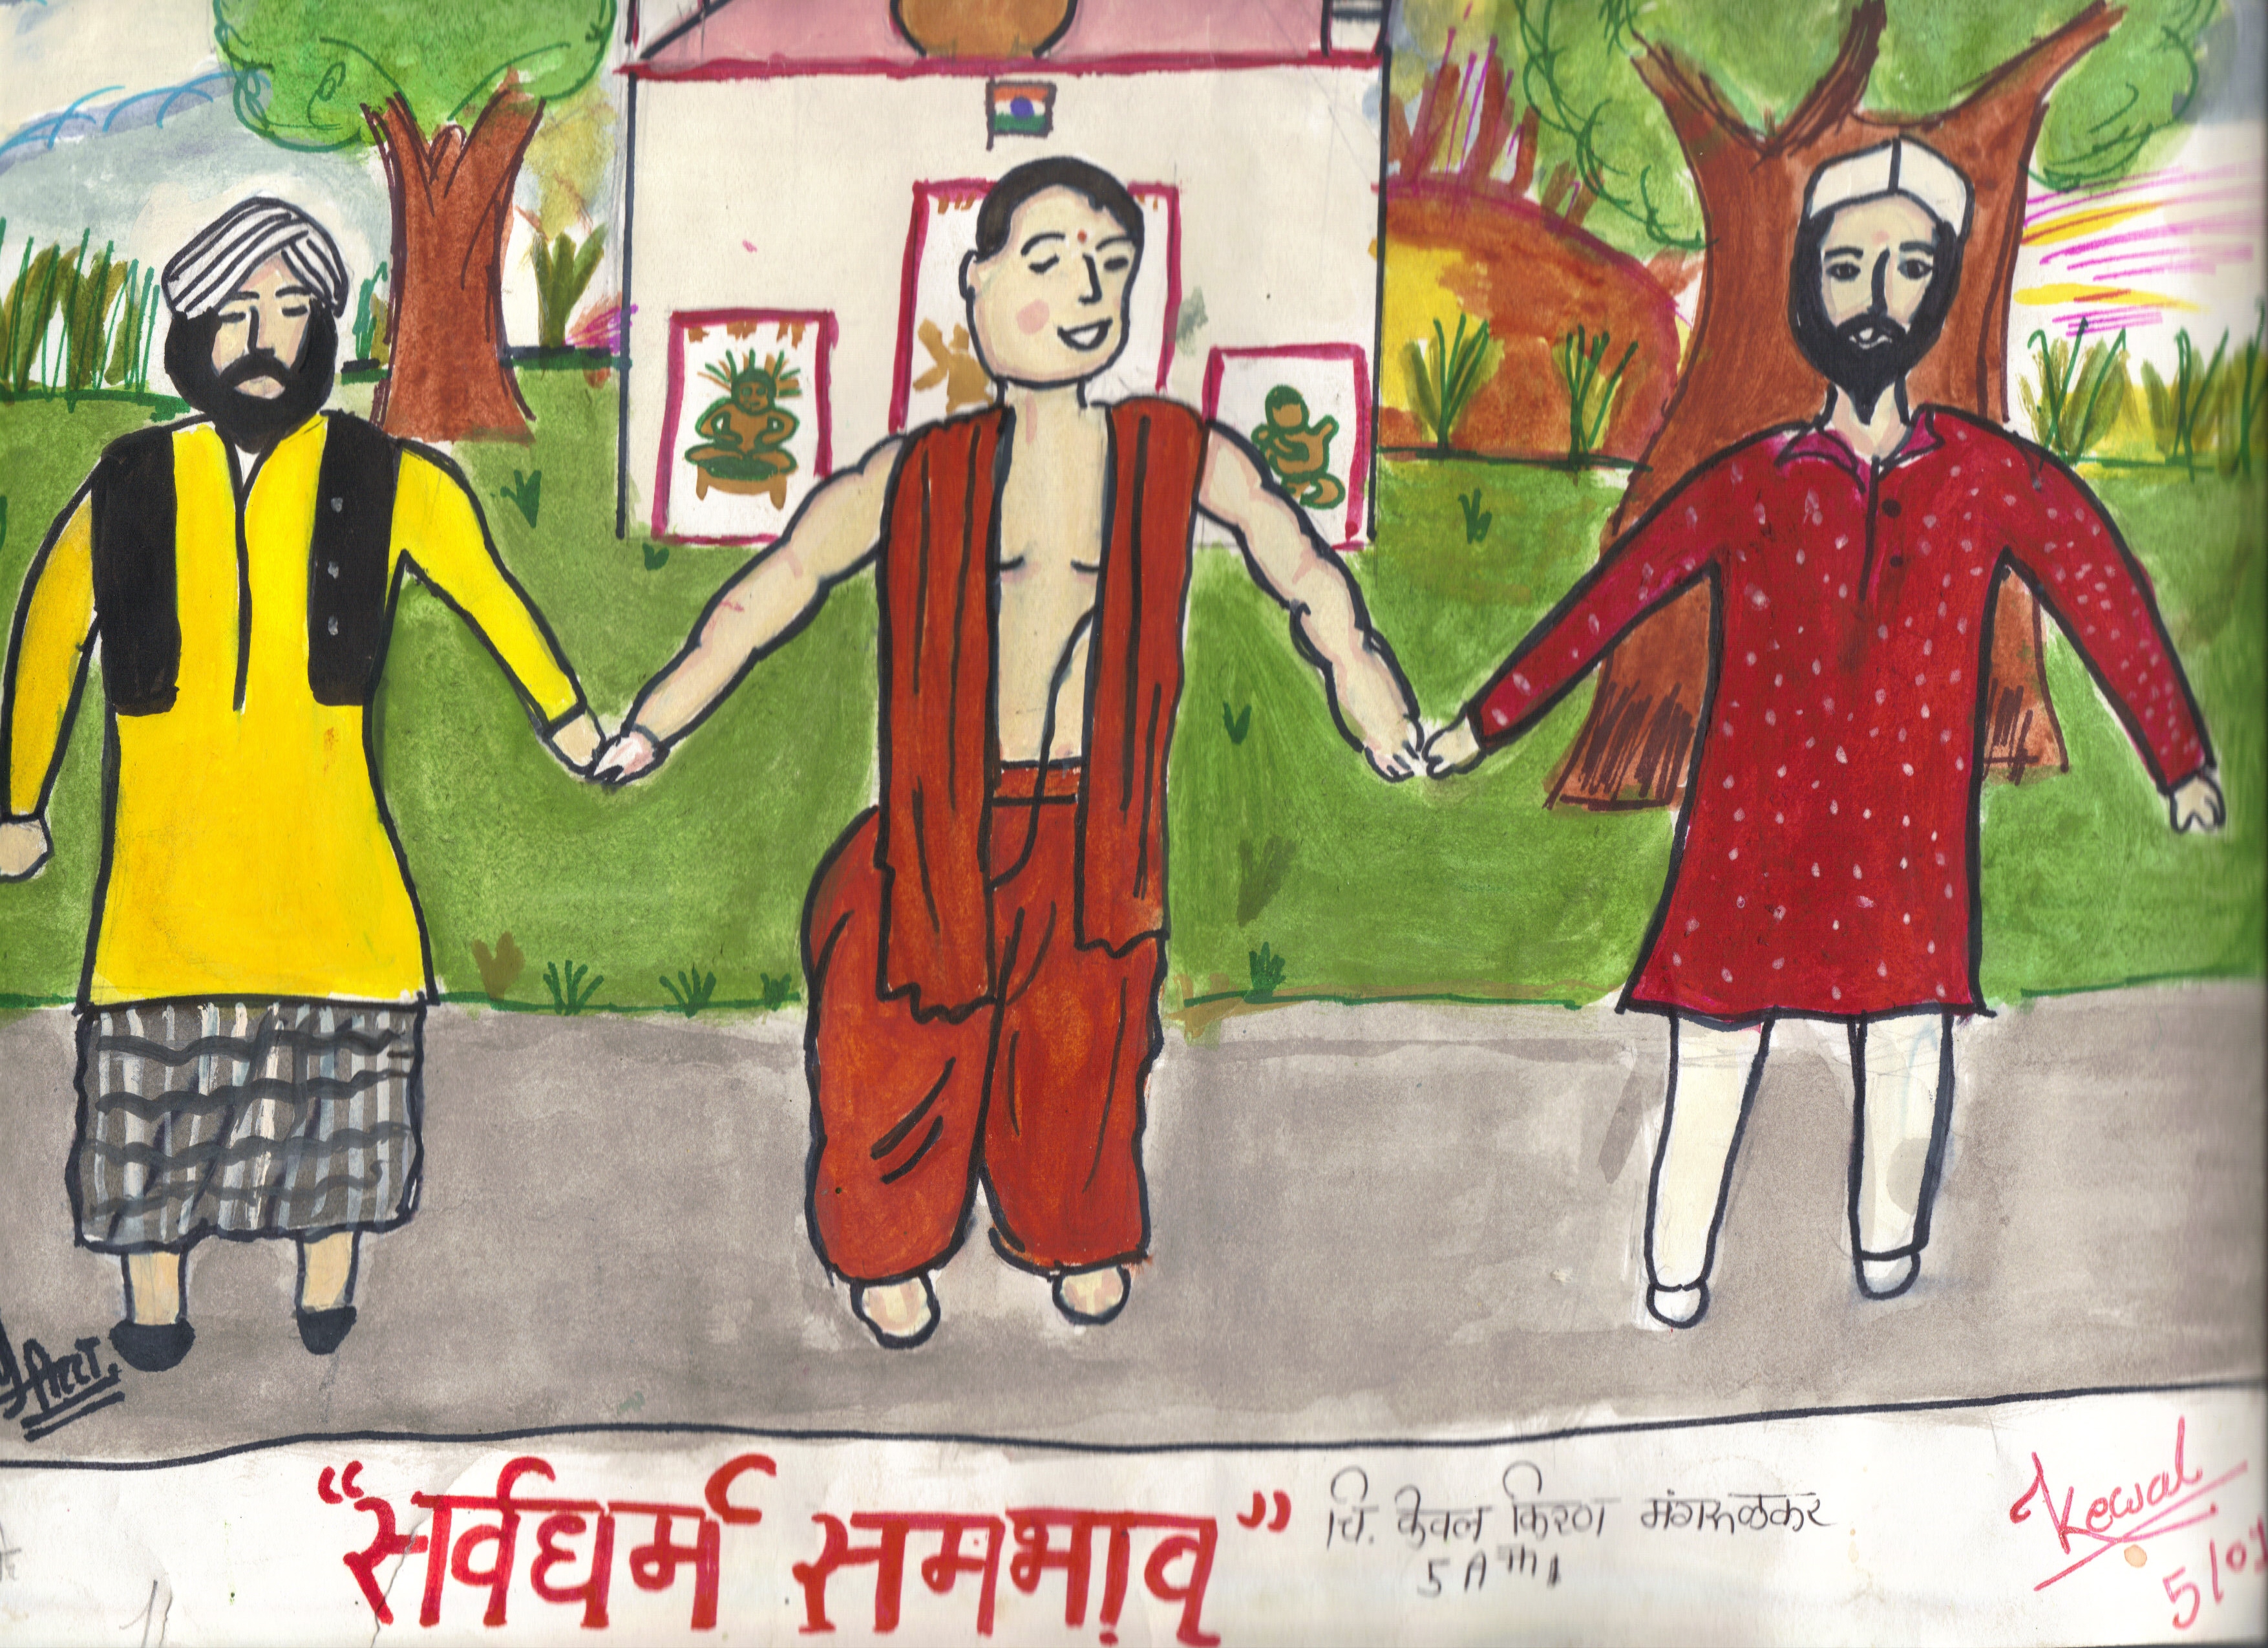 “सर्वधर्म समभाव”
चि. केवल किरण मंगरुळकर
5 Ath
Kewal